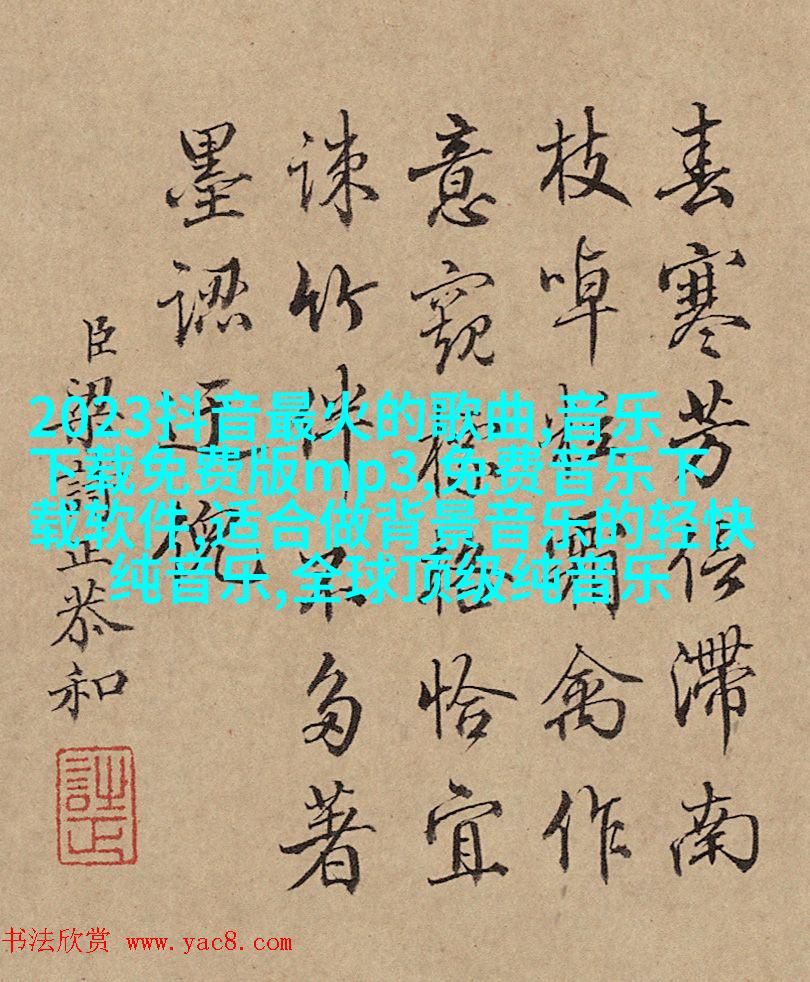 春寒芳信滯南
枝啅禽作
意窺標格恰宜
疎竹伴不多著
墨認
臣梁詩正恭和
詩正
2023抖音最火的歌曲,音乐
下载免费版mp3,免费音乐下
载软件,适合做背景音乐的轻快
纯音乐,全球顶级纯音乐
书法欣赏 www.yac8.com